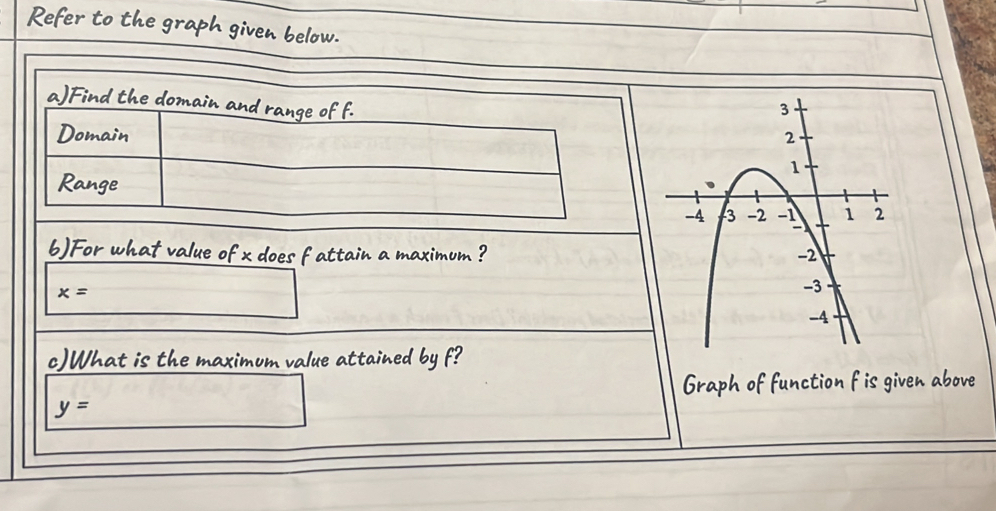 Refer to the graph given below.
a)Find the domain and range of f.
Domain
Range
b)For what value of x does f attain a maximum?
x =
c)What is the maximum value attained by f?
y =
3
2
1
-4 -3 -2 -1 1 2
-1
-2
-3
-4
Graph of function f is given above